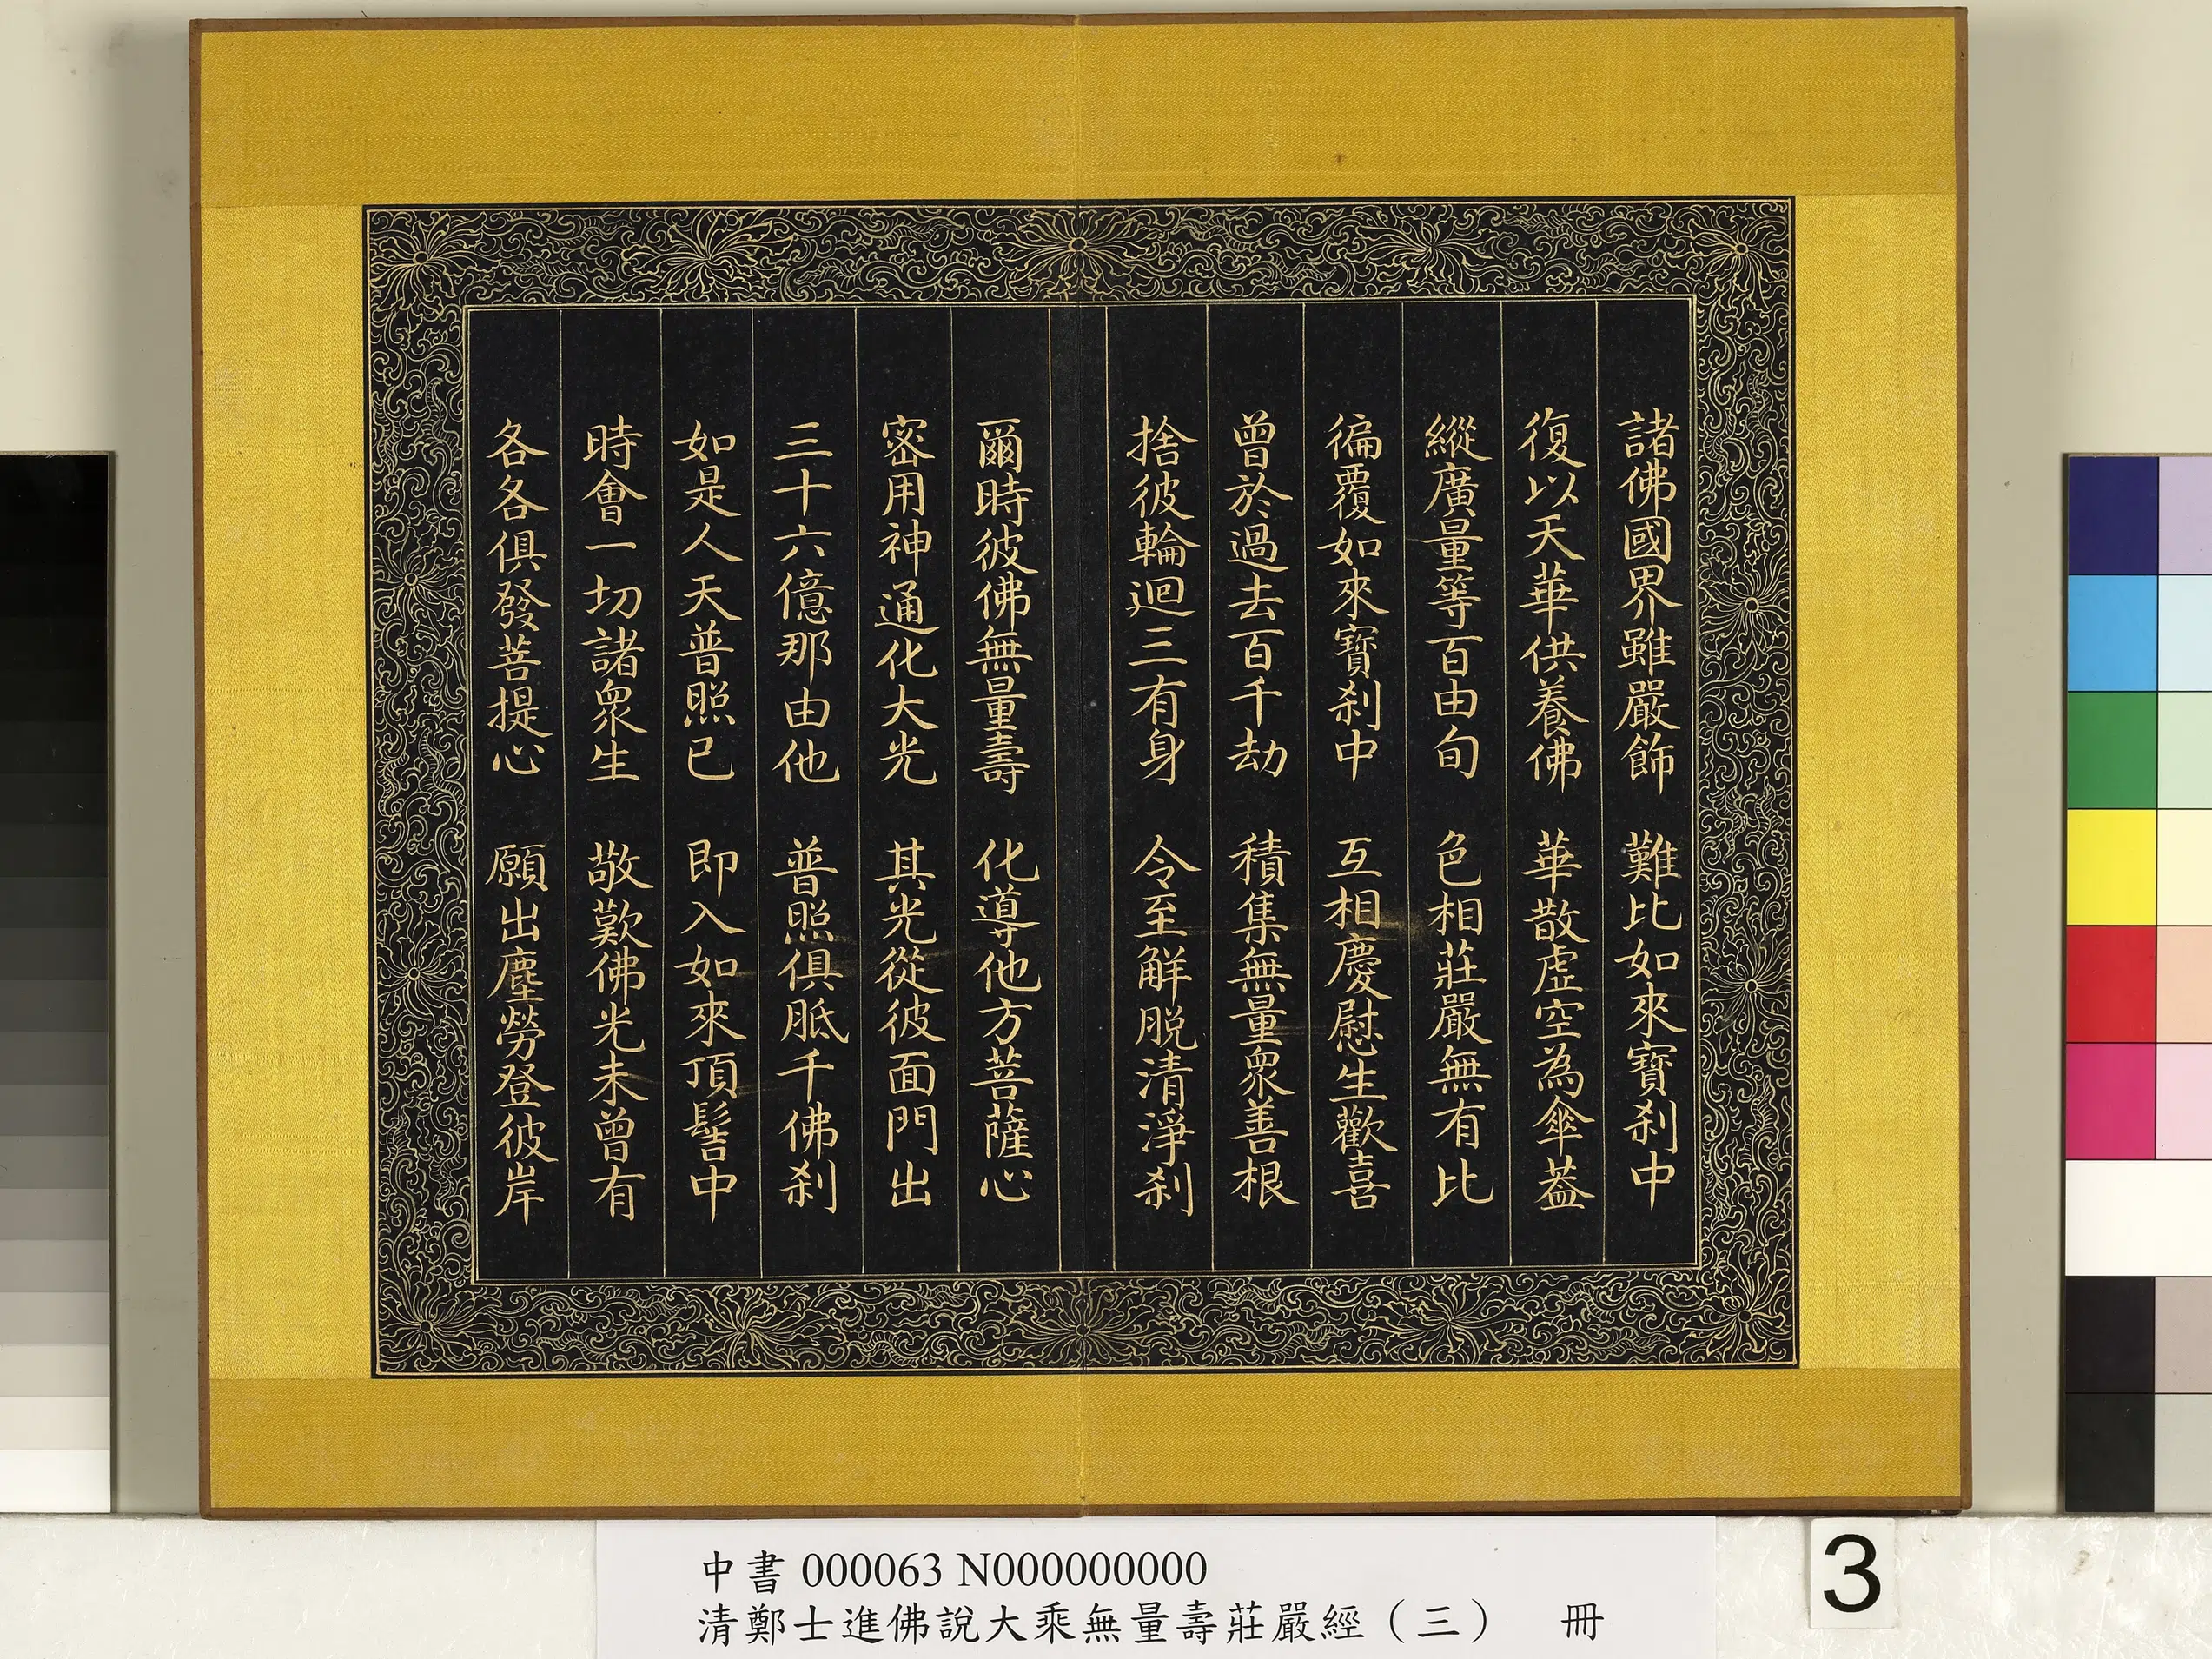 諸佛國界雖嚴飾　難比如來寶刹中
復以天華供養佛　華散虛空為傘蓋
縱廣量等百由旬　色相莊嚴無有比
徧覆如來寶刹中　互相慶慰生歡喜
曾於過去百千劫　積集無量衆善根
捨彼輪迴三有身　令至解脫清淨刹
爾時彼佛無量壽　化導他方菩薩心
密用神通化大光　其光從彼面門出
三十六億那由他　普照俱胝千佛刹
如是人天普照已　即入如來頂髻中
時會一切諸衆生　敬歎佛光未曾有
各各俱發菩提心　願出塵勞登彼岸
中書 000063 N000000000
清鄭士進佛說大乘無量壽莊嚴經（三）　冊
3